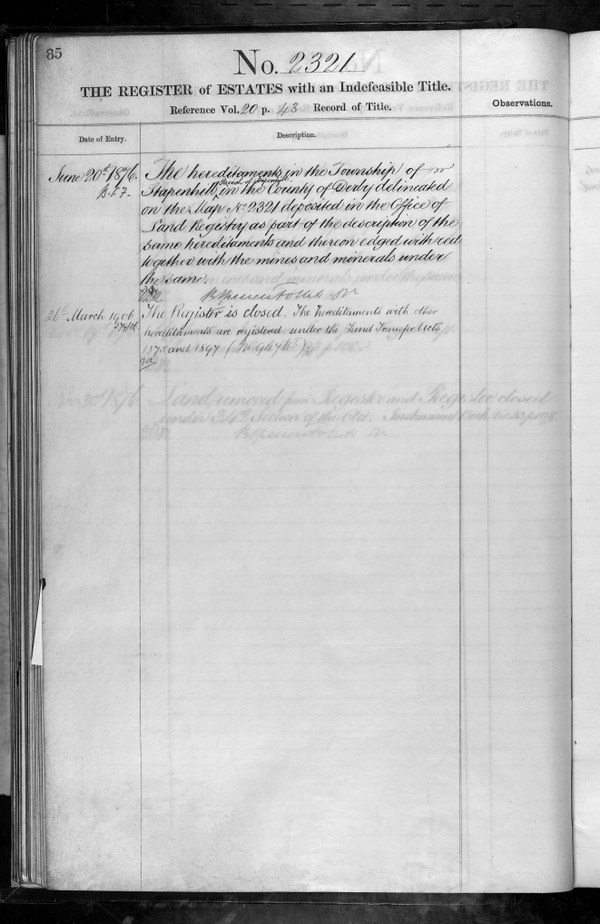 85
No. 2321
THE REGISTER of ESTATES with an Indefeasible Title.
Reference Vol. 20 p. 43 Record of Title.
Observations.
Date of Entry.
Description.
June 20th 1876.
The hereditaments in the Township of
Stapenhill in the County of Derby delineated
on the Map No 2321 deposited in the Office of
Land Registry as part of the description of the
same hereditaments and thereon edged with red
together with the mines and minerals under
the same.
26 March 1906
The Register is closed. The hereditaments with other
hereditaments are registered under the Land Transfer Acts
1875 and 1897